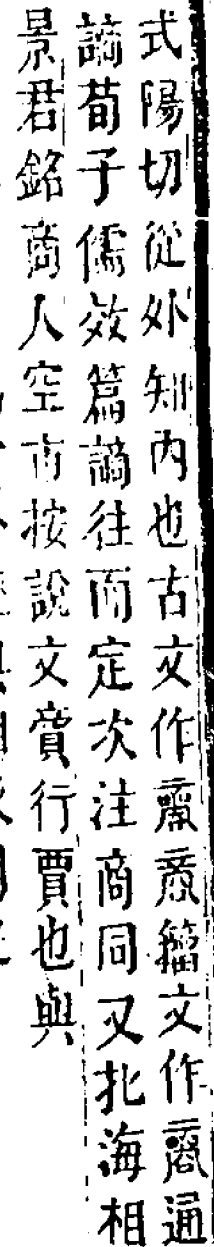 式陽切從外知內也古文作𠾃𠿧籀文作𧷞通
謪荀子儒效篇謪徃而定次注商同又北海相
景君銘商人空市按說文𧶜行賈也與